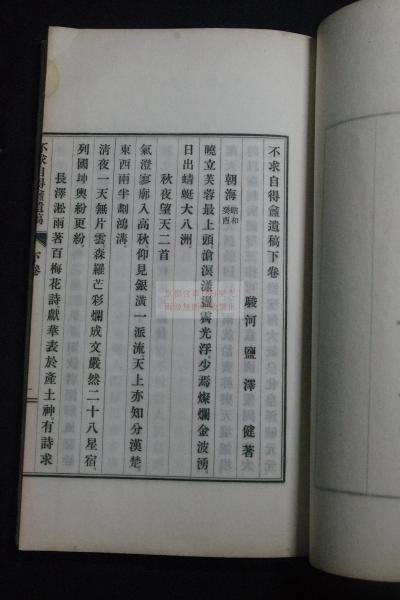 不求自得齋遺稿下卷
駿河鹽澤　健著
朝海 昭和癸酉
曉立芙蓉最上頭滄溟漾溫霽光浮少焉燦爛金波湧
日出蜻蜓大八洲
秋夜望天二首
氣澄寥廓入高秋仰見銀潢一派流天上亦知分漢楚
東西兩半劃鴻溝
淸夜一天無片雲森羅芒彩爛成文嚴然二十八星宿
列國坤輿紛更紛
長澤淞雨著百梅花詩獻華表於產土神有詩求
不求自得齋遺稿
下卷
一